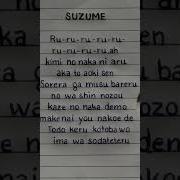 SUZUME
Ru-ru-ru-ru-ru-
ru-ru-ru-ru ah
kimi no naka ni aru
aka to aoki sen
Sorera ga musu bareru
no wa shin nozou
kaze no naka demo
makenai you nakoe de
Todo keru kotoba wo
ima wa sodateteru